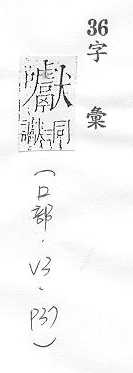 36
字彙
𡅎
讞同
（口部．V3．P37）